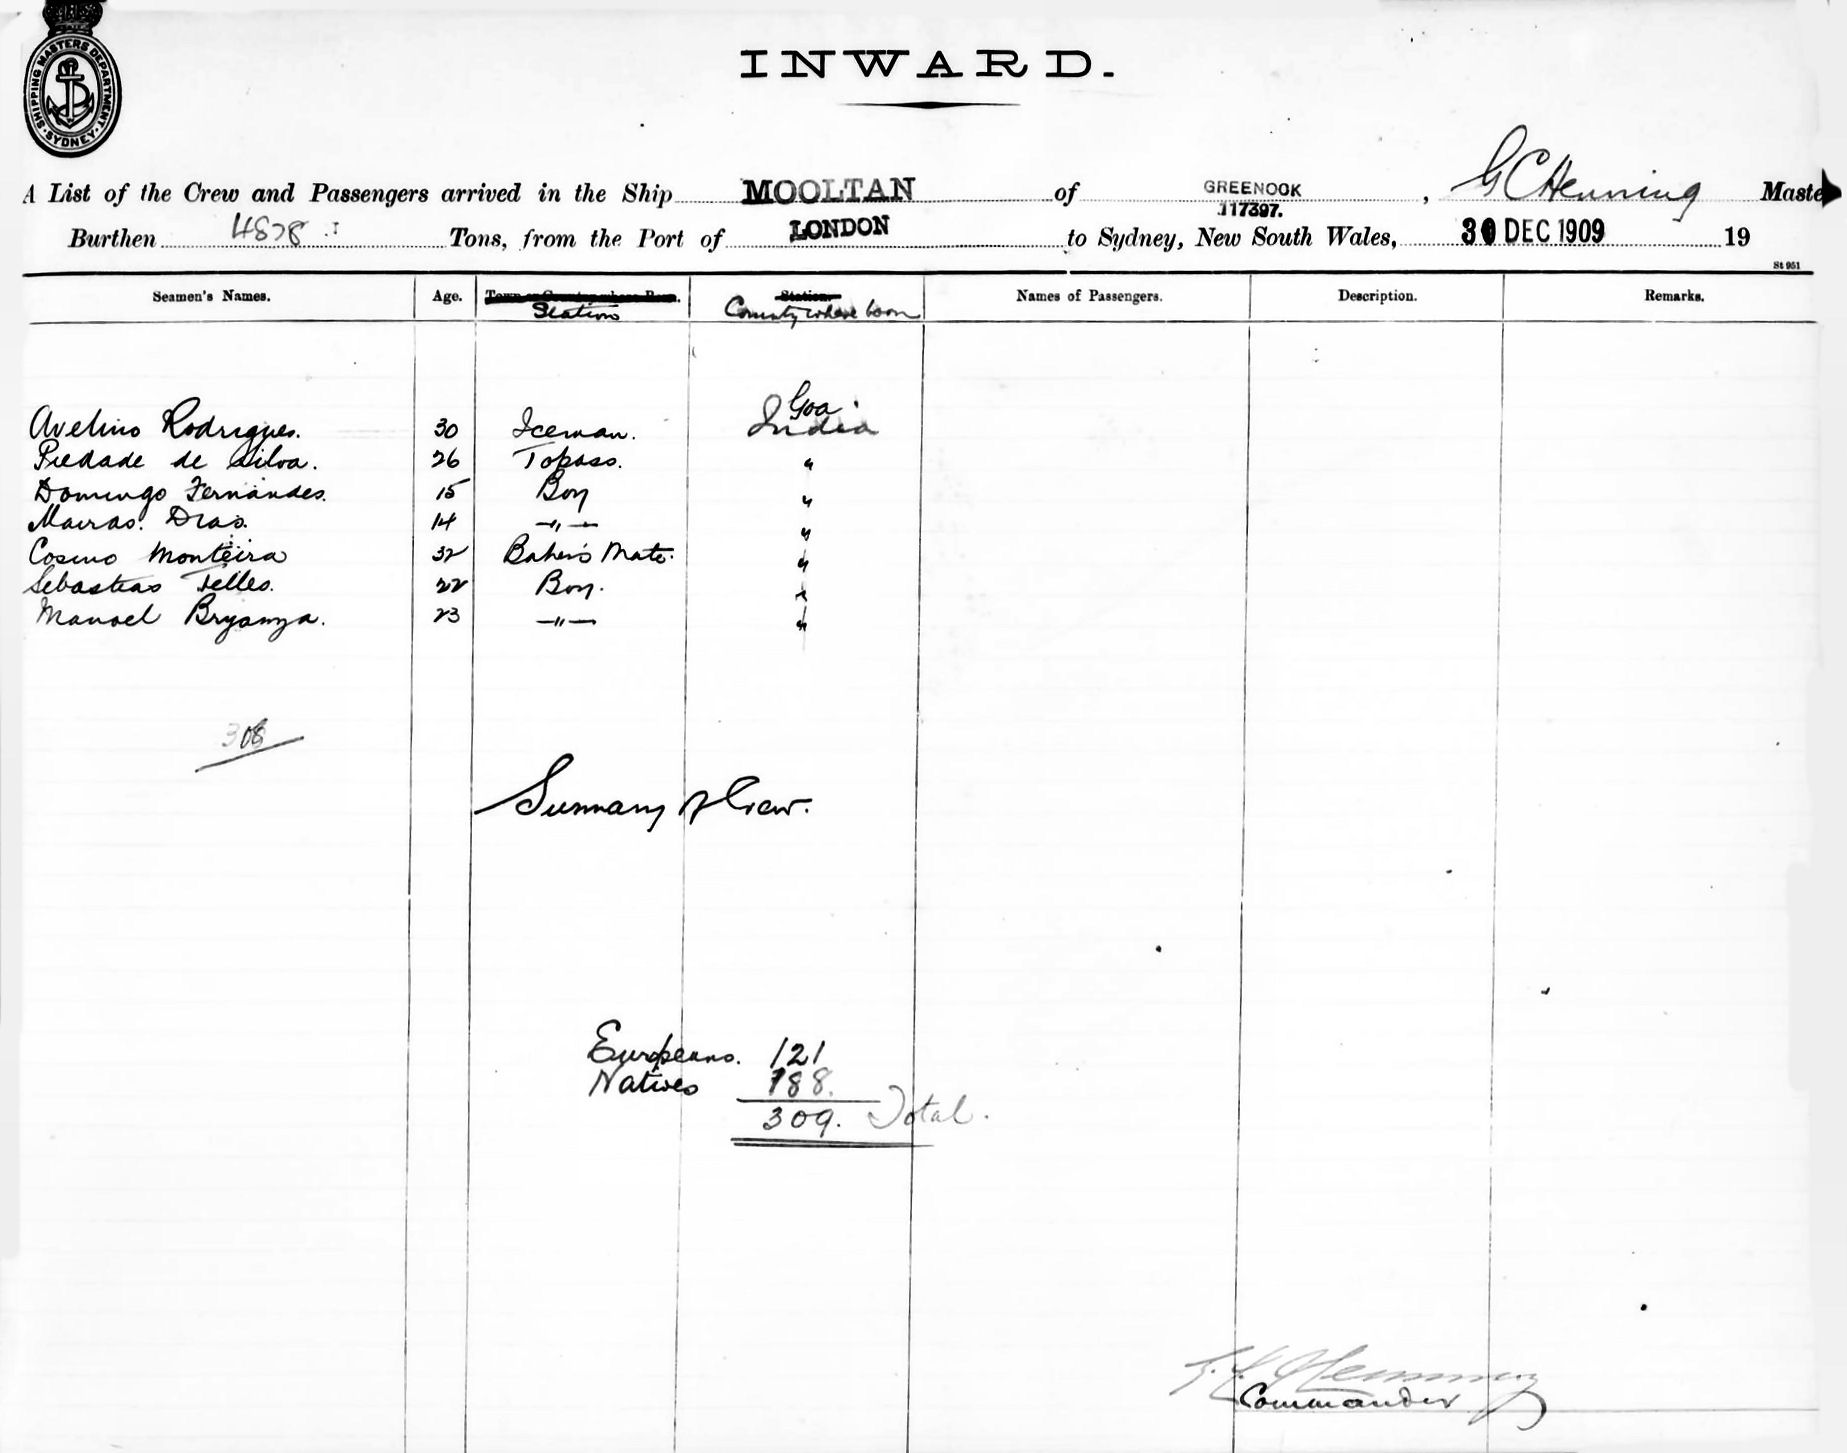 SHIPPING MASTERS DEPARTMENT. SYDNEY
INWARD.
A List of the Crew and Passengers arrived in the Ship MOOLTAN of GREENOCK 117397. , G C Henning Master
Burthen 4828 Tons, from the Port of LONDON to Sydney, New South Wales, 30 DEC 1909 19
St 951
Seamen's Names. Age. Town or Country where Born. Station. Names of Passengers. Description. Remarks.
Station Country where born
Goa
Avelino Rodrigues. 30 Iceman. India
Piedade de Silva. 26 Topass. "
Domingo Fernandes. 15 Boy "
Dias. 14 —"— "
Cosmo Monteira 32 Baker's Mate. "
Sebastiao Telles. 22 Boy. "
Manoel Bryanza. 23 —"— "
308
Summary of Crew.
Europeans. 121
Natives 188.
309. Total.
Henning
Commander